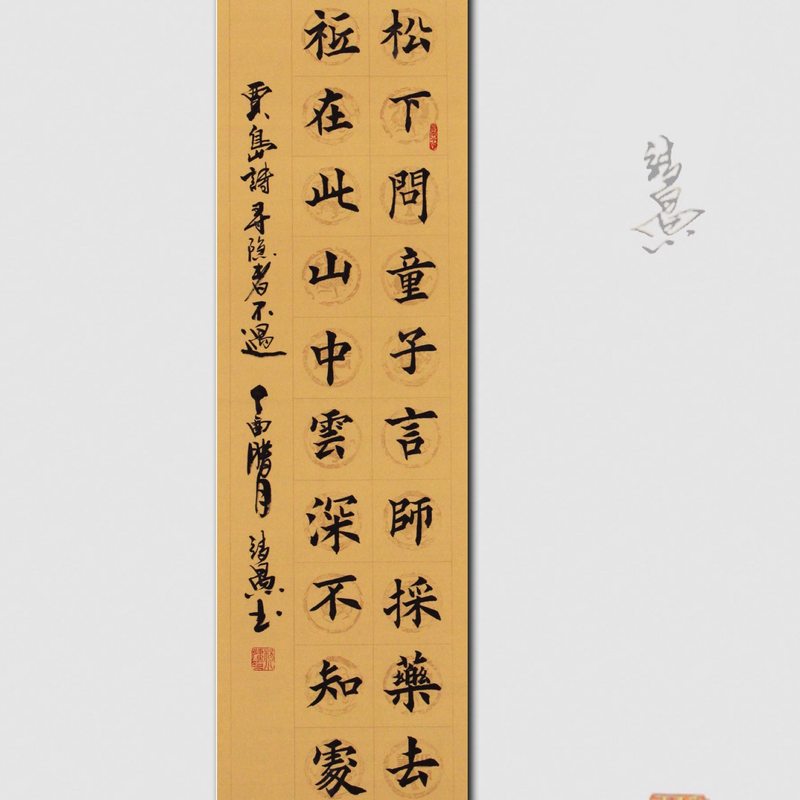 松下問童子言師採藥去
祗在此山中雲深不知處
賈島詩尋隐者不遇 丁酉腊月 靖愚书
靖愚